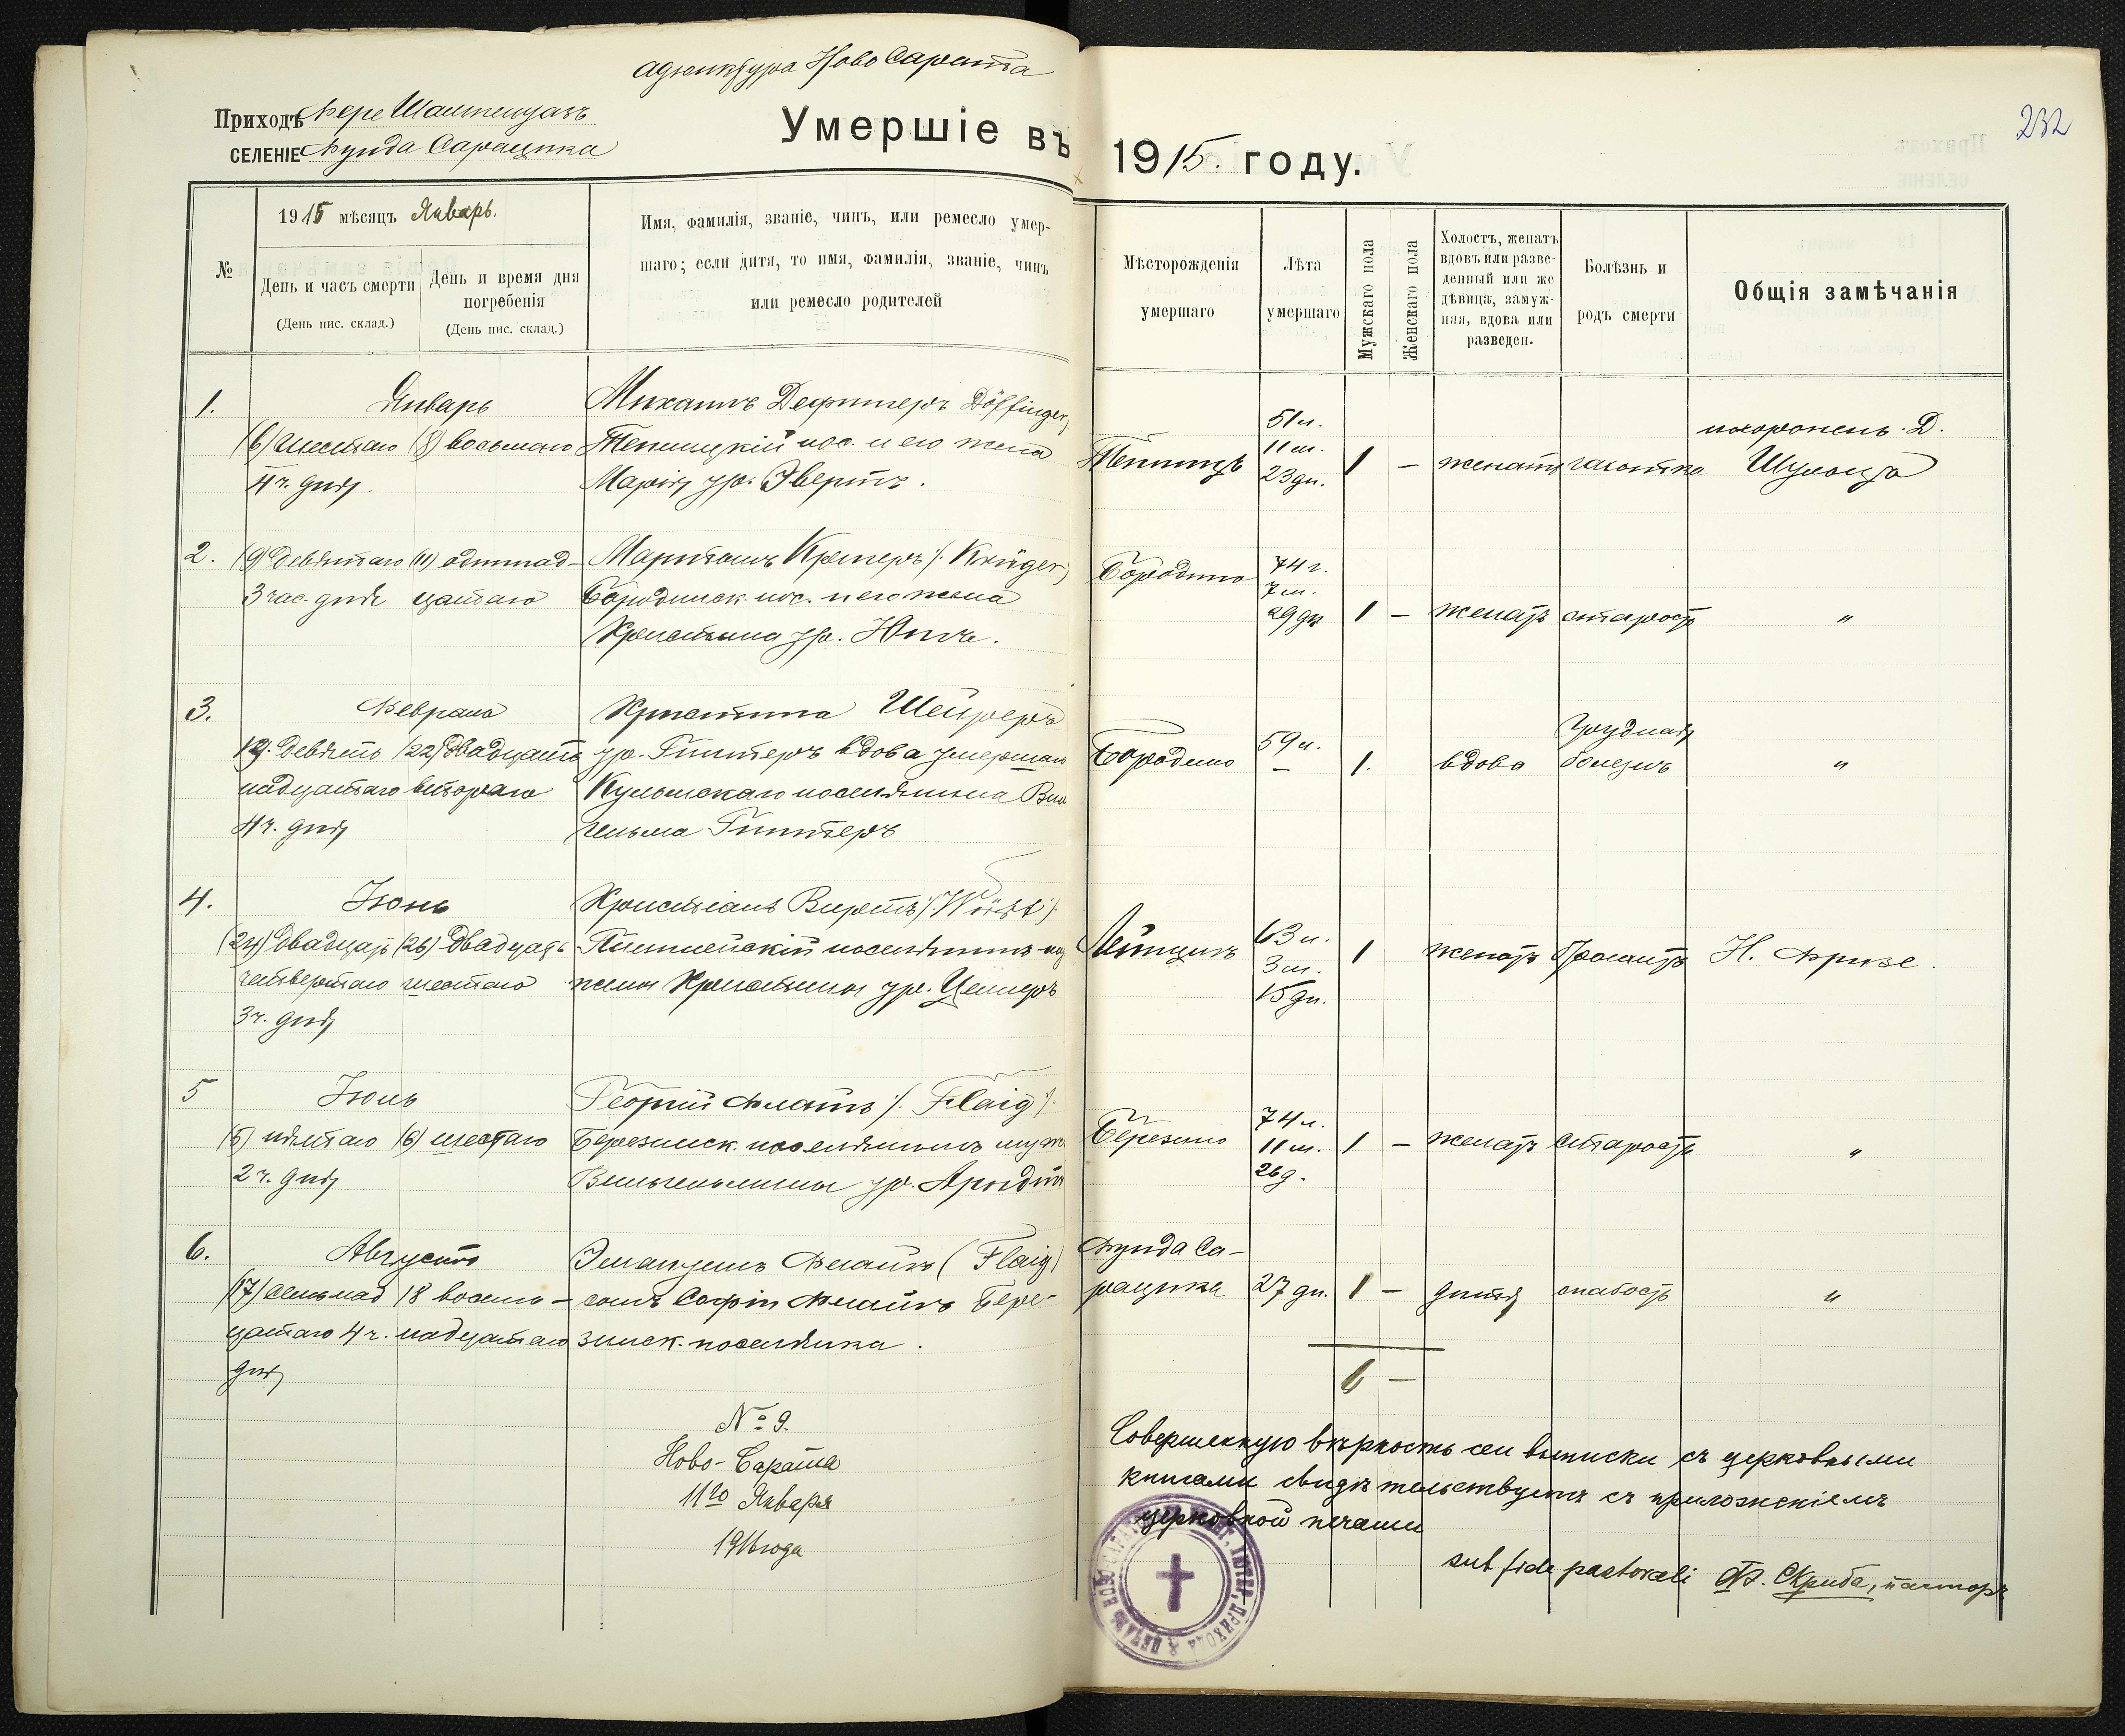 адюнктура Ново Сарата
Приходъ Фере Шампенуазъ
СЕЛЕНІЕ Фунда Сарацика
Умершіе въ 1915. году.
232
№
1915 мѣсяцъ Январь.
День и часъ смерти
(День пис. склад.)
День и время дня
погребенія
(День пис. склад.)
Имя, фамилія, званіе, чинъ, или ремесло умер-
шаго; если дитя, то имя, фамилія, званіе, чинъ
или ремесло родителей
Мѣсторожденія
умершаго
Лѣта
умершаго
Мужскаго пола
Женскаго пола
Холостъ, женатъ
вдовъ или разве-
денный или же
дѣвица, замуж-
няя, вдова или
разведен.
Болѣзнь и
родъ смерти
Общія замѣчанія
1.
Январь
(6) шестаго
4 ч. дня.
(8) восьмаго
Михаилъ Дефингеръ Döffinger,
Теплицкій пос. и его жена
Марія ур. Эвертъ.
Теплицъ
51 л.
11 м.
23 дн.
1 –
женатъ
чахотка
похороненъ. Д.
Шульцъ
2.
(9) девятаго
3 час. дня
(11) одиннад-
цатаго
Крюгеръ /. Krüger)
Бородинск. пос. и его жена
Кристина ур.
Бородино
74 г.
7 м.
29 дн
1 –
женатъ
старость
"
3.
Февраля
19. Девят-
надцатаго
4 ч. дня
(22) Двадцать
втораго
Кристина
ур. вдова умершаго
Кульмскаго поселянина Виль
гельма
Бородино
59 л.
–
1.
вдова
грудная
болезнь
"
4.
Іюнь
(24) двадцать
четвертаго
3 ч. дня
(26) Двадцать
шестаго
Христіанъ Виретъ /. Würst /.
поселянинъ
жена Кристина ур.
Лейпцигъ
63 л.
3 м.
15 дн.
1
женатъ
Н. Фризе.
5
Іюль
(5) пятаго
2 ч. дня
(6) шестаго
Георгій Флайгъ /. Flaig /.
Березинск. поселянинъ мужъ
Вильгельмины ур. Арндтъ
Березино
74 л.
11 м.
26 д.
1 –
женатъ
старость
"
6.
Августъ
(17) семнад
цатаго 4 ч.
дня
18 восем-
надцатаго
Эмануилъ Флайгъ (Flaig)
сынъ Софіи Флайгъ Бере-
зинск. поселянка.
Фунда Са-
рацика
27 дн.
1 –
дитя
слабость
"
6 –
№ 9.
Ново-Сарата
11го Января
1916 года
Совершенную вѣрность сей выписки съ церковными
книгами свидѣтельствуетъ съ приложеніемъ
церковной печати
sub fide pastorali Ф. Скриба, пасторъ